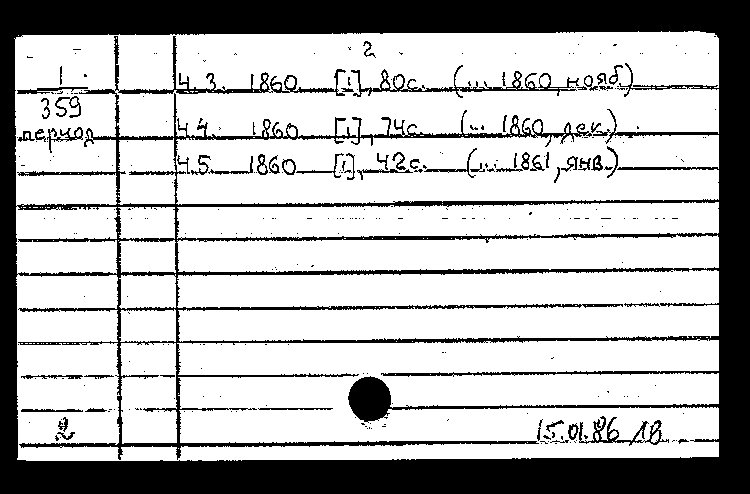 2
1
359
период
Ч.3. 1860. [1], 80с. (... 1860, нояб.)
Ч.4. 1860 [1], 74с. (... 1860, дек.)
Ч.5. 1860 [1], 42с. (... 1861, янв.)
2
15.01.86 18